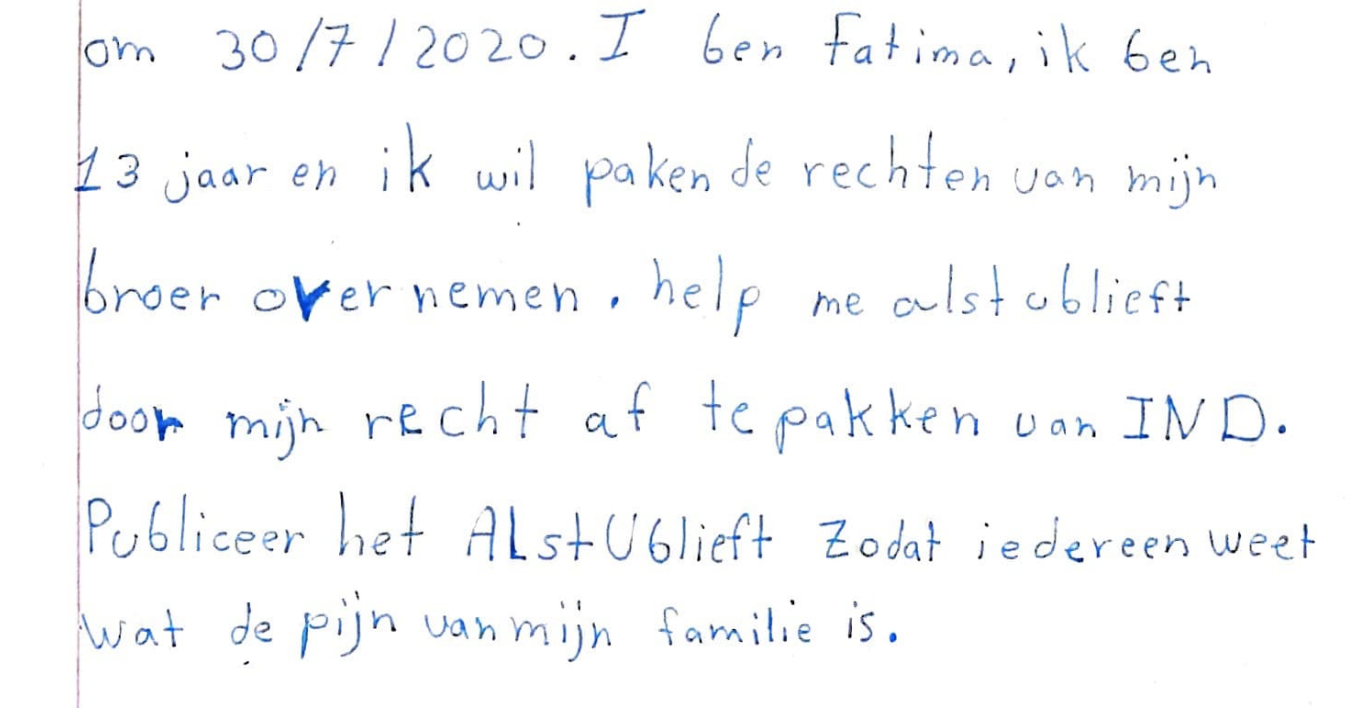 om 30/7/2020. I ben fatima, ik ben
13 jaar en ik wil paken de rechten van mijn
broer over nemen. help me alstublieft
door mijn recht af te pakken van IND.
Publiceer het ALstUblieft Zodat iedereen weet
wat de pijn van mijn familie is.